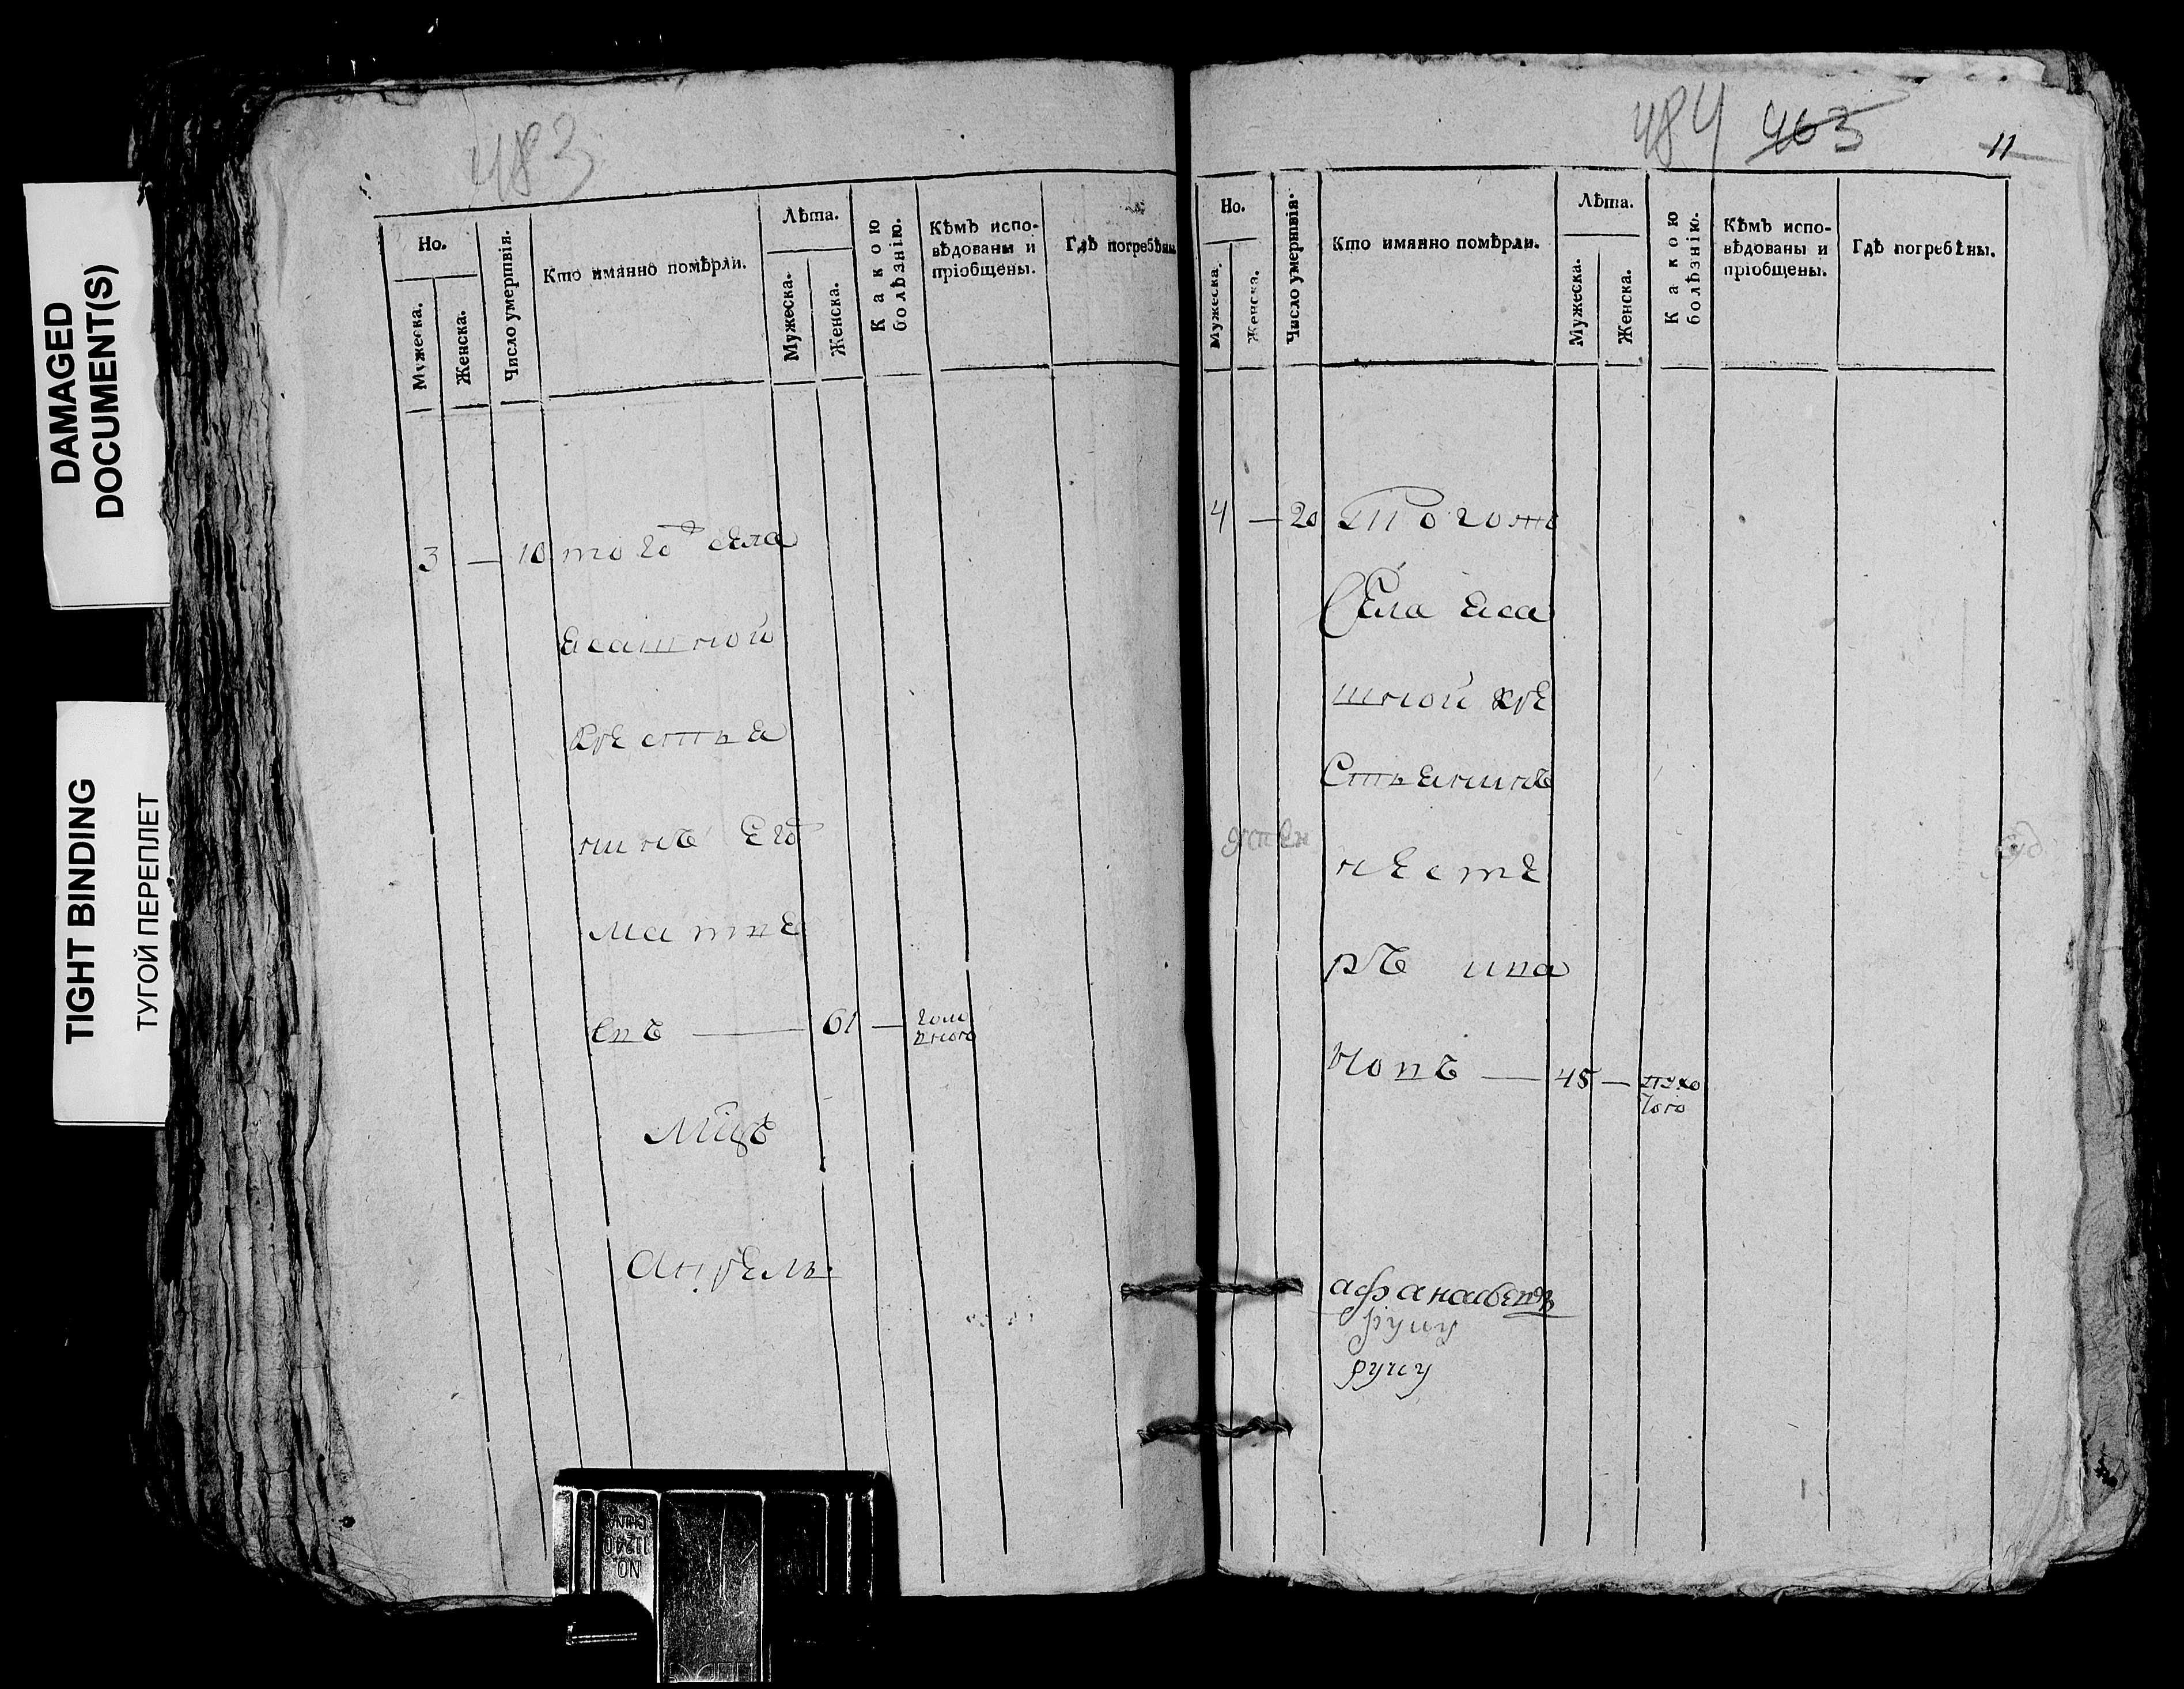 DAMAGED
DOCUMENT(S)
TIGHT BINDING
ТУГОЙ ПЕРЕПЛЕТ
483
Но.
Мужеска.
Женска.
Число умертвія.
Кто имянно помѣрли.
Лѣта.
Мужеска.
Женска.
Какою
болѣзнію.
Кѣмъ испо-
вѣдованы и
пріобщены.
Гдѣ погребѣны
3 — 10 того села
ясашной
крестья
нинъ его
матве
евъ — 61 —
Мцъ
Апрель
NO.
11240
CHINA
484 463 11
Но.
Мужеска.
Женска.
Число умертвія.
Кто имянно помѣрли.
Лѣта.
Мужеска.
Женска.
Какою
болѣзнію.
Кѣмъ испо-
вѣдованы и
пріобщены.
Гдѣ погребѣны.
4 — 20 Тогожъ
Села яса
шной кре
стьянинъ
несте
ръ ива
новъ — 45 —